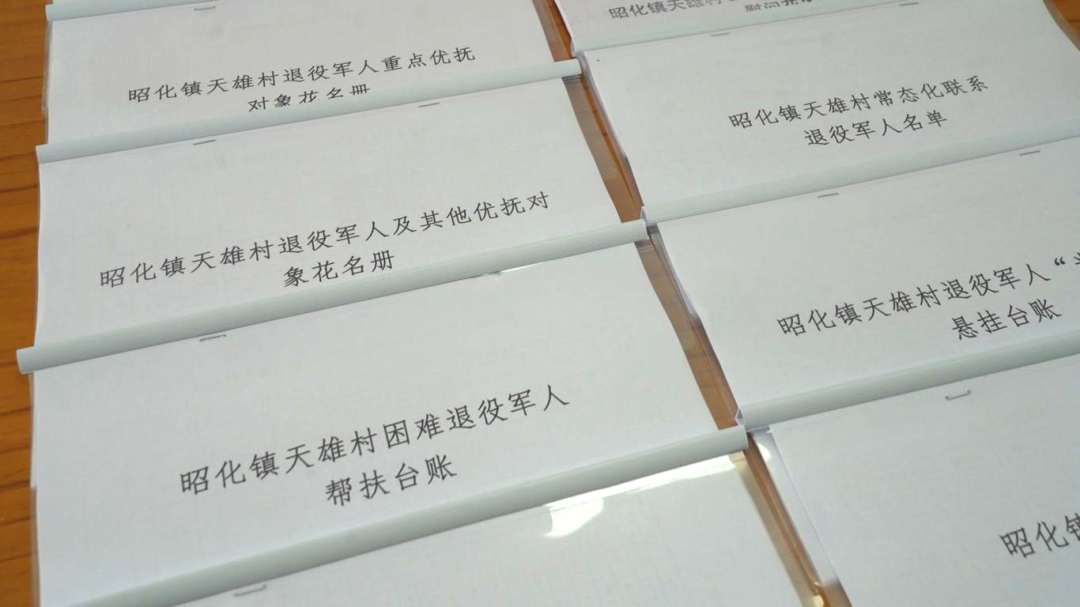 昭化镇天雄村退役军人重点优抚
对象花名册
昭化镇天雄村退役军人及其他优抚对
象花名册
昭化镇天雄村困难退役军人
帮扶台账
昭化镇天雄村
慰问
昭化镇天雄村常态化联系
退役军人名单
昭化镇天雄村退役军人“
悬挂台账
昭化镇